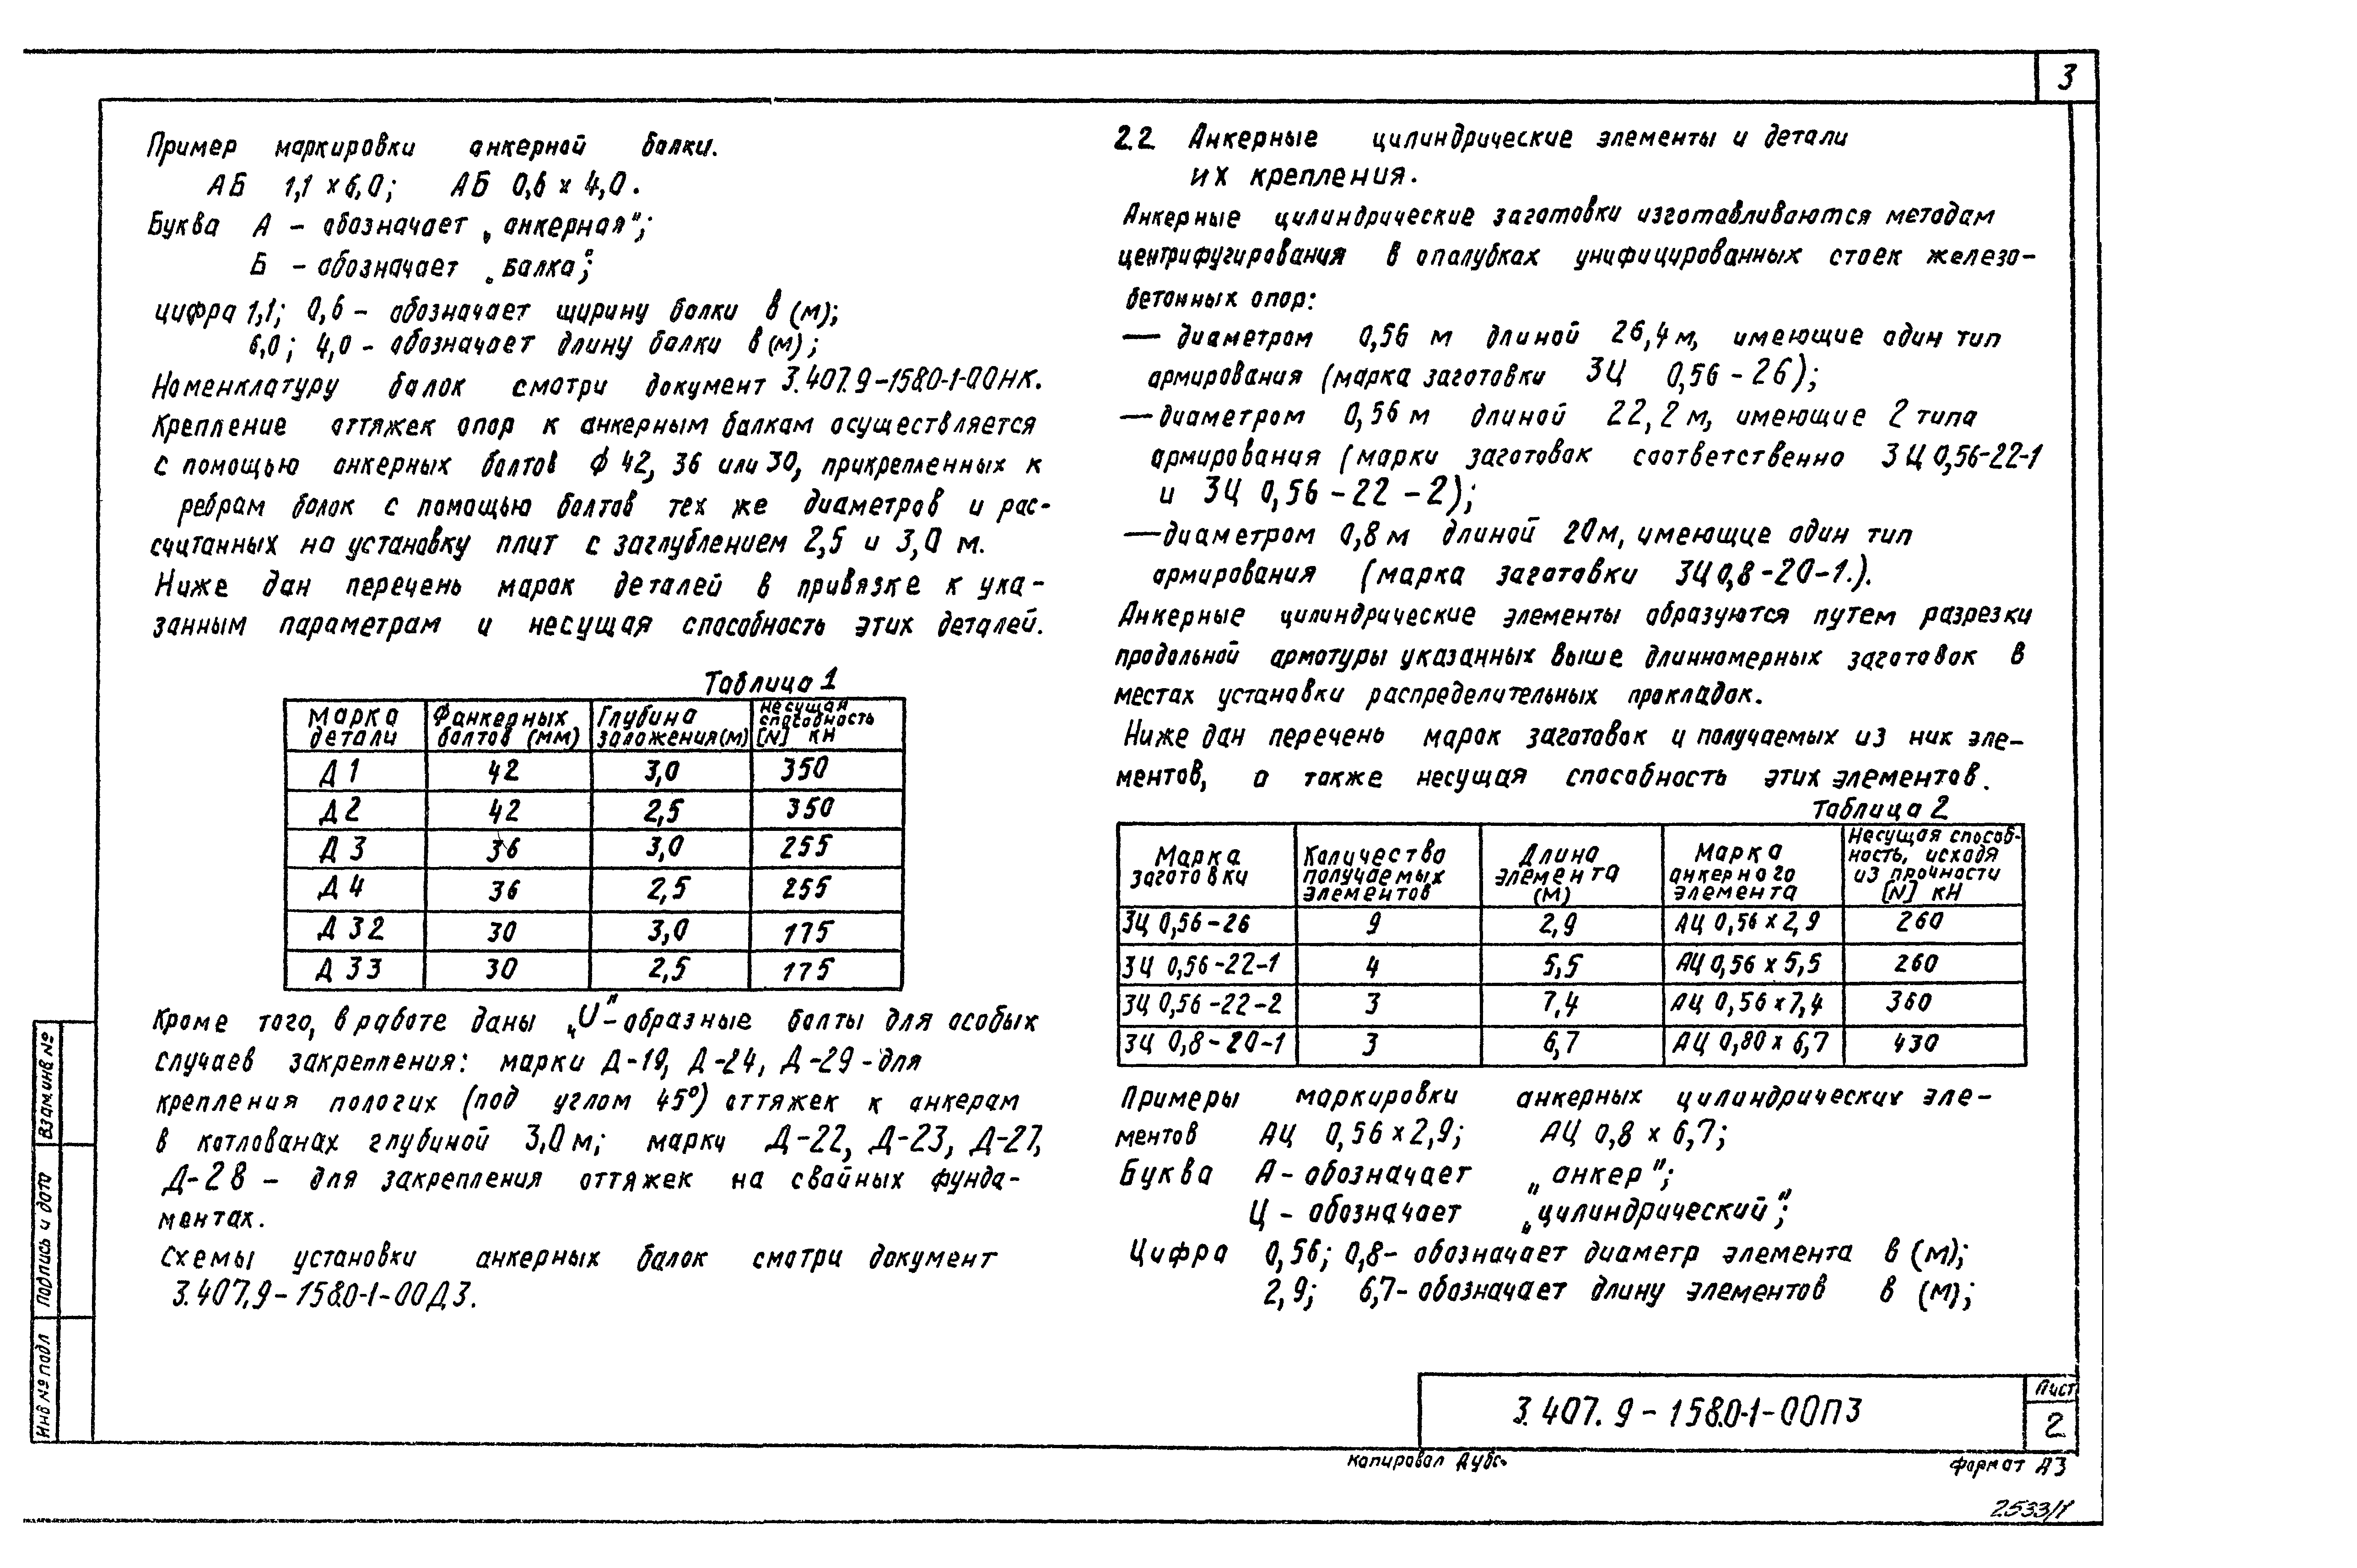 3
Пример маркировки анкерной балки.
АБ 1,1 х 6,0; АБ 0,6 х 4,0.
Буква А – обозначает „анкерная";
Б – обозначает „балка";
цифра 1,1; 0,6 – обозначает ширину балки в (м);
6,0; 4,0 – обозначает длину балки в (м);
Номенклатуру балок смотри документ 3.407.9–158.0-1-00НК.
Крепление оттяжек опор к анкерным балкам осуществляется
с помощью анкерных болтов ф 42, 36 или 30, прикрепленных к
ребрам балок с помощью болтов тех же диаметров и рас-
считанных на установку плит с заглублением 2,5 и 3,0 м.
Ниже дан перечень марок деталей в привязке к ука-
занным параметрам и несущая способность этих деталей.
Таблица 1
Марка детали | Ф анкерных болтов (мм) | Глубина заложения (м) | Несущая способность [N] кН
Д 1 | 42 | 3,0 | 350
Д 2 | 42 | 2,5 | 350
Д 3 | 36 | 3,0 | 255
Д 4 | 36 | 2,5 | 255
Д 32 | 30 | 3,0 | 175
Д 33 | 30 | 2,5 | 175
Кроме того, в работе даны „U"-образные болты для особых
случаев закрепления: марки Д-19, Д-24, Д-29 - для
крепления пологих (под углом 45°) оттяжек к анкерам
в котлованах глубиной 3,0 м; марки Д-22, Д-23, Д-27,
Д-28 – для закрепления оттяжек на свайных фунда-
ментах.
Схемы установки анкерных балок смотри документ
3.407.9–158.0-1-00Д3.
2.2 Анкерные цилиндрические элементы и детали
их крепления.
Анкерные цилиндрические заготовки изготавливаются методам
центрифугирования в опалубках унифицированных стоек железо-
бетонных опор:
— диаметром 0,56 м длиной 26,4 м, имеющие один тип
армирования (марка заготовки ЗЦ 0,56 – 26);
— диаметром 0,56 м длиной 22,2 м, имеющие 2 типа
армирования (марки заготовок соответственно ЗЦ 0,56-22-1
и ЗЦ 0,56 – 22 – 2);
— диаметром 0,8 м длиной 20 м, имеющие один тип
армирования (марка заготовки ЗЦ 0,8-20-1.).
Анкерные цилиндрические элементы образуются путем разрезки
продольной арматуры указанных выше длинномерных заготовок в
местах установки распределительных прокладок.
Ниже дан перечень марок заготовок и получаемых из них эле-
ментов, а также несущая способность этих элементов.
Таблица 2
Марка заготовки | Количество получаемых элементов | Длина элемента (м) | Марка анкерного элемента | Несущая способ-ность, исходя из прочности [N] кН
ЗЦ 0,56-26 | 9 | 2,9 | АЦ 0,56 х 2,9 | 260
ЗЦ 0,56-22-1 | 4 | 5,5 | АЦ 0,56 х 5,5 | 260
ЗЦ 0,56-22-2 | 3 | 7,4 | АЦ 0,56 х 7,4 | 360
ЗЦ 0,8-20-1 | 3 | 6,7 | АЦ 0,80 х 6,7 | 430
Примеры маркировки анкерных цилиндрических эле-
ментов АЦ 0,56 х 2,9; АЦ 0,8 х 6,7;
Буква А – обозначает „анкер";
Ц – обозначает „цилиндрический";
Цифра 0,56; 0,8 – обозначает диаметр элемента в (м);
2,9; 6,7 – обозначает длину элементов в (м);
Взам.инв №
Подпись и дата
Инв № подл
3.407.9 – 158.0-1-00ПЗ
Лист
2
Копировал
Формат А3
2533/1